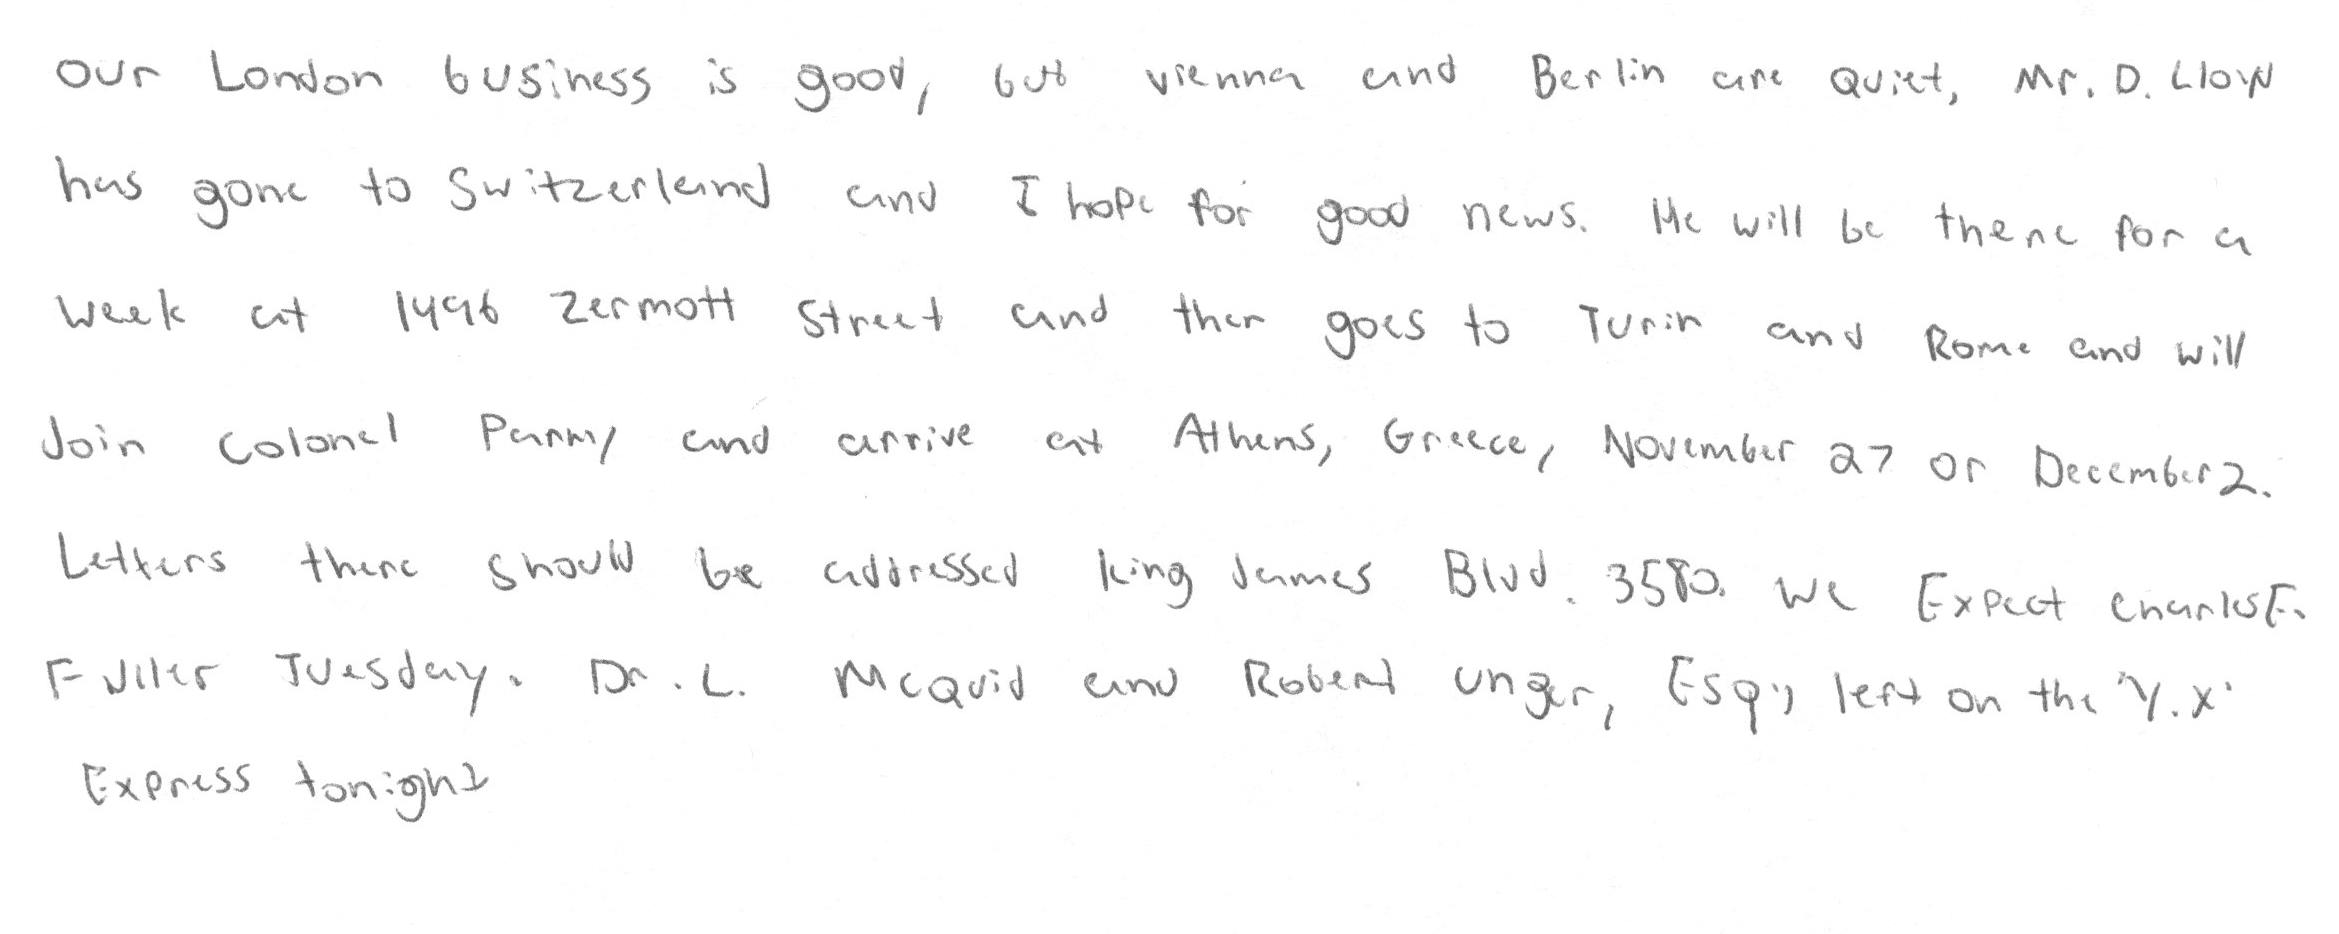 our London business is good, but vienna and Berlin are quiet, Mr. D. Lloyd
has gone to Switzerland and I hope for good news. He will be there for a
week at 1496 Zermott Street and then goes to Turin and Rome and will
Join colonel Parry and arrive at Athens, Greece, November 27 or December 2.
Letters there should be addressed king James Blvd. 3580. we Expect Charles E.
Fuller Tuesday. Dr. L. McQuid and Robert unger, Esq., left on the "Y.X"
Express tonight